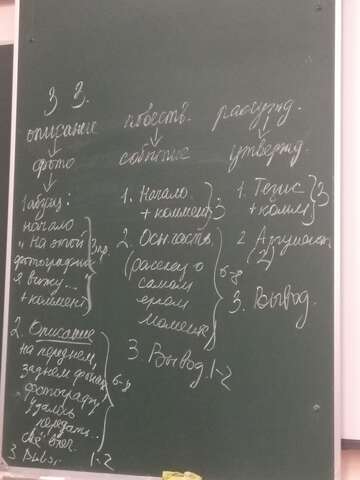 3 3.
описание повеств. рассужд.
фото событие утвержд.
1 абзац:
начало
"На этой
фотографии
я вижу...
+ коммент
3 пр.
2. Описание
на переднем,
заднем фоне
фотографу
удалось
передать..
6-8
3. Вывод 1-2
1. Начало
+ коммент
3
2. Осн часть
(рассказ о
самом
моменте
6-8
3. Вывод 1-2
1. Тезис
+ комм
3
2 Аргумент
(2)
3. Вывод.